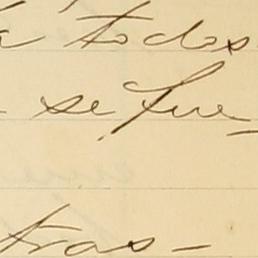 a todos
se fue-
tras-